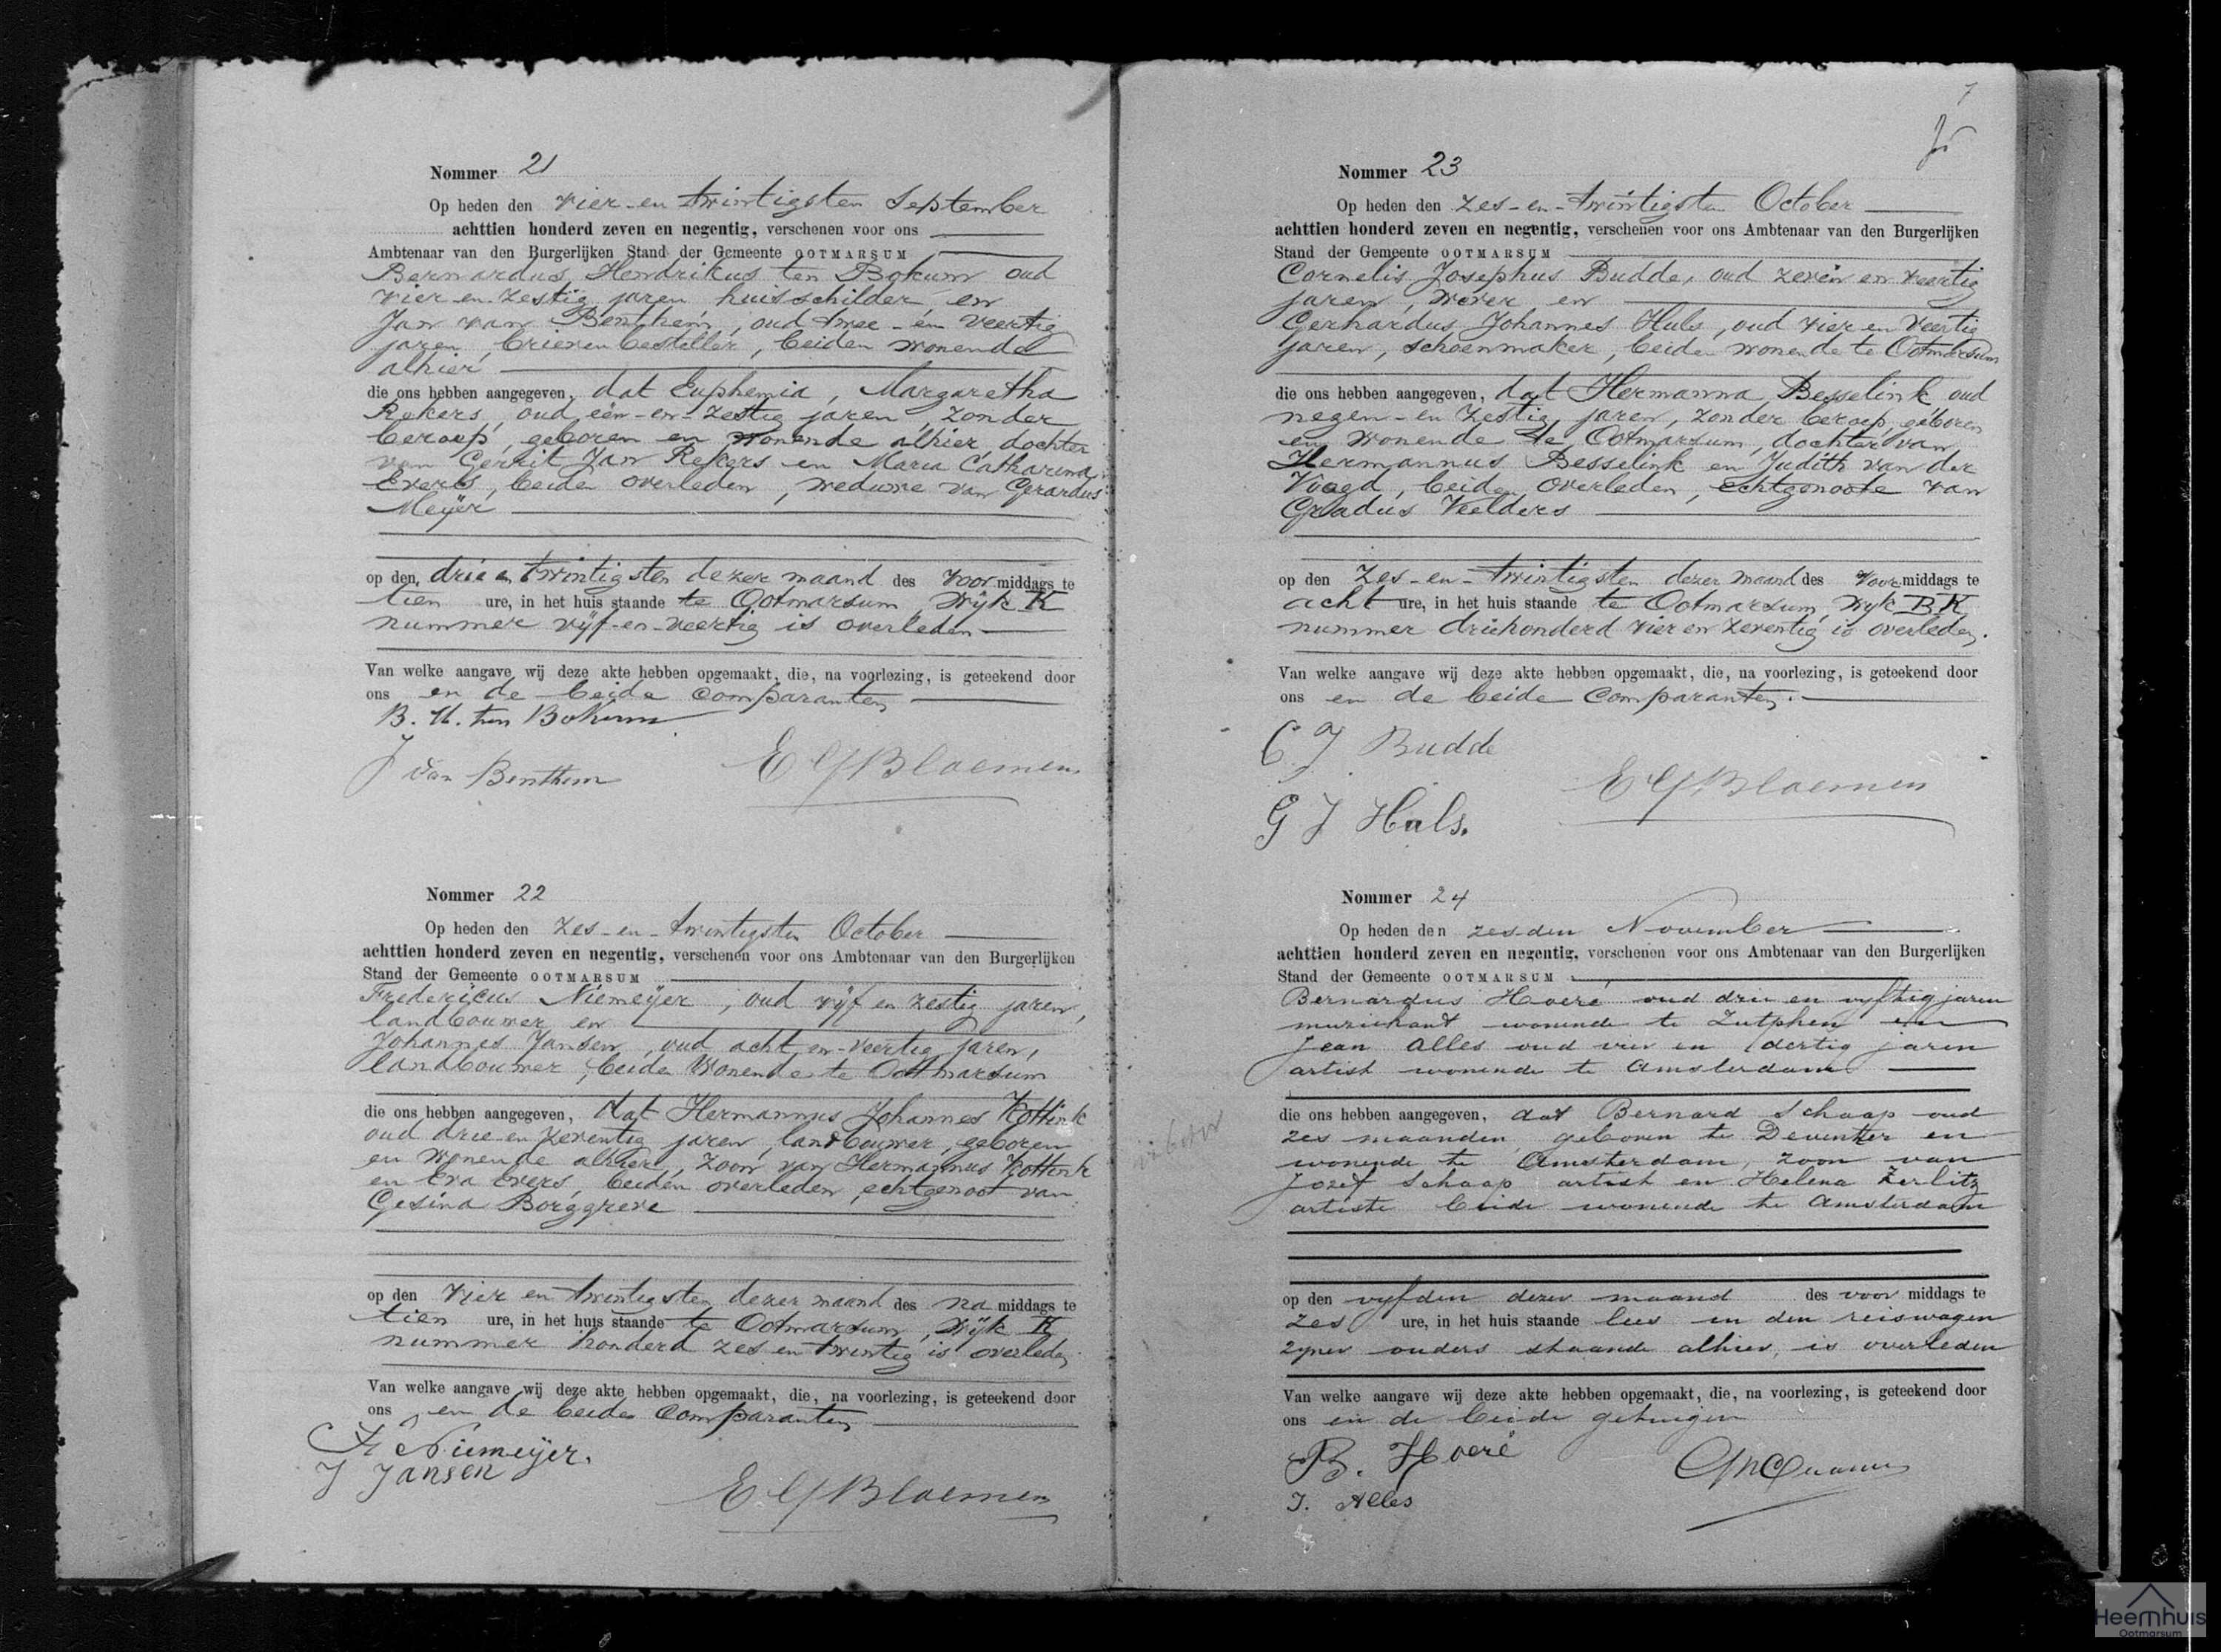 Nommer 21
Op heden den vier-en-twintigsten September
achttien honderd zeven en negentig, verschenen voor ons
Ambtenaar van den Burgerlijken Stand der Gemeente OOTMARSUM
Bernardus Hendrikus ten Bokum oud
vier-en-zestig jaren huisschilder en
Jan van Benthem, oud twee-en veertig
jaren, brievenbesteller, beiden wonende
alhier
die ons hebben aangegeven, dat Euphemia, Margaretha
Rekers, oud een-en-zestig jaren, zonder
beroep, geboren en wonende alhier, dochter
van Gerrit Jan Rekers en Maria Catharina
Everts, beiden overleden, weduwe van Gerardus
Meijer
op den drie en twintigsten dezer maand des voormiddags te
tien ure, in het huis staande te Ootmarsum, Wijk K
nummer vijf-en-veertig is overleden
Van welke aangave wij deze akte hebben opgemaakt, die, na voorlezing, is geteekend door
ons en de beide comparanten
B. H. ten Bokum
J van Benthem
E G Bloemen
Nommer 22
Op heden den zes-en-twintigsten October
achttien honderd zeven en negentig, verschenen voor ons Ambtenaar van den Burgerlijken
Stand der Gemeente OOTMARSUM
Fredericus Niemeijer, oud vijf en zestig jaren,
landbouwer en
Johannes Jansen, oud acht-en-veertig jaren,
landbouwer, beide wonende te Ootmarsum
die ons hebben aangegeven, dat Hermannus Johannes Kottink
oud drie-en zeventig jaren, landbouwer, geboren
en wonende alhier, zoon van Hermannus Kottink
en Eva Evers, beiden overleden, echtgenoot van
Gesina Borggreve
op den vier en twintigsten dezer maand des na middags te
tien ure, in het huis staande te Ootmarsum, Wijk K
nummer honderd zes en twintig is overleden
Van welke aangave wij deze akte hebben opgemaakt, die, na voorlezing, is geteekend door
ons en de beide comparanten
Fr Niemeijer.
J Jansen
E G Bloemen
7
Nommer 23
Op heden den zes-en-twintigsten October
achttien honderd zeven en negentig, verschenen voor ons Ambtenaar van den Burgerlijken
Stand der Gemeente OOTMARSUM
Cornelis Josephus Budde, oud zeven en veertig
jaren, wever en
Gerhardus Johannes Huls, oud vier en veertig
jaren, schoenmaker, beiden wonende te Ootmarsum
die ons hebben aangegeven, dat Hermanna Besselink oud
negen-en zestig jaren, zonder beroep, geboren
en wonende te Ootmarsum, dochter van
Hermannus Besselink en Judith van der
Voagd, beiden overleden, echtgenoote van
Gradus Veelders
op den zes-en-twintigsten dezer maand des voormiddags te
acht ure, in het huis staande te Ootmarsum, Wijk B K
nummer driehonderd vier en zeventig is overleden.
Van welke aangave wij deze akte hebben opgemaakt, die, na voorlezing, is geteekend door
ons en de beide comparanten.
C. J. Budde
E G Bloemen
G J Huls.
Nommer 24
Op heden den zesden November
achttien honderd zeven en negentig, verschenen voor ons Ambtenaar van den Burgerlijken
Stand der Gemeente OOTMARSUM
Bernardus Hoeré oud drie en vyftig jaren
muzickant wonende te Zutphen en
Jean Alles oud vier en dertig jaren
artist wonende te Amsterdam
die ons hebben aangegeven, dat Bernard Schaap oud
zes maanden, geboren te Deventer en
wonende te Amsterdam, zoon van
Jozef Schaap artist en Helena Zerlitz
artiste beide wonende te Amsterdam
op den vyfden dezer maand des voor middags te
zes ure, in het huis staande lees in den reiswagen
zyner ouders staande alhier, is overleden
Van welke aangave wij deze akte hebben opgemaakt, die, na voorlezing, is geteekend door
ons en de beide getuigen
B. Hoeré
J. Alles
Heemhuis
Ootmarsum